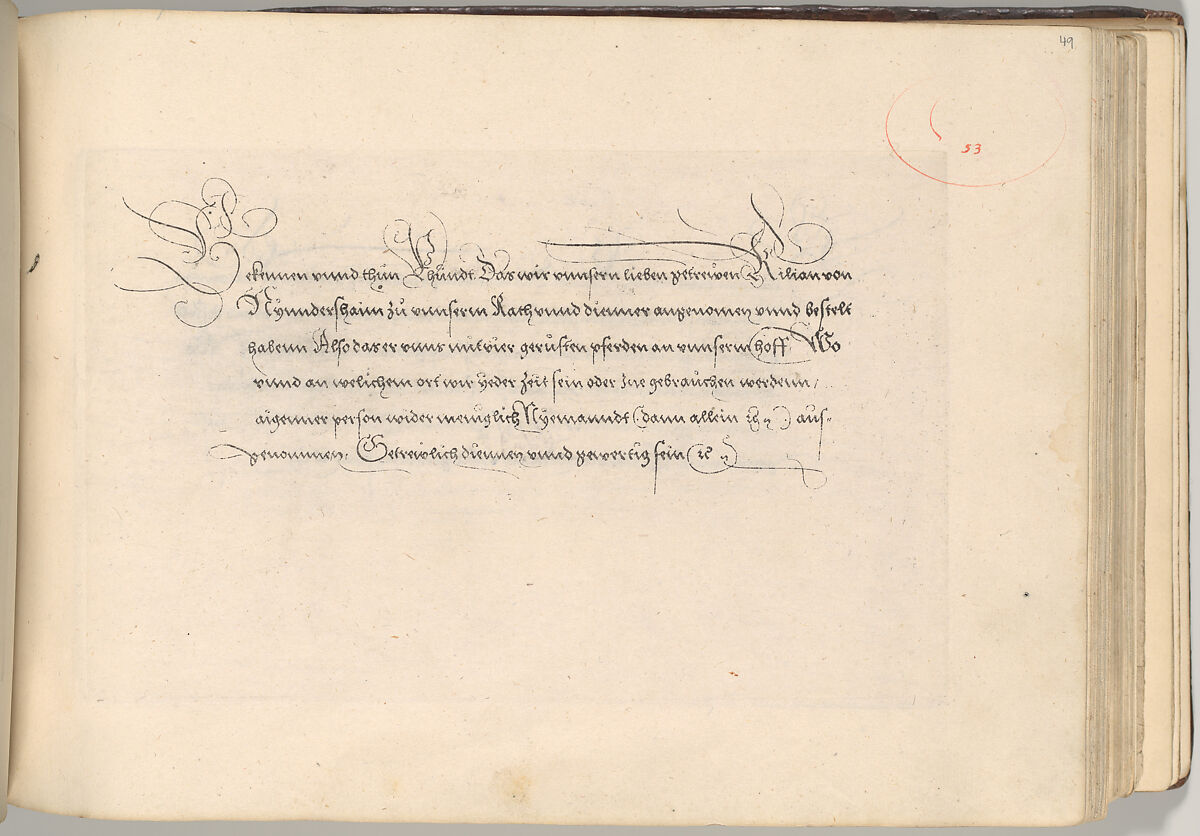 49
53
Bekennen vnnd thůn Khůndt. Das wir vnnsern lieben getrewen Kilian von
Nÿnndershaim zů vnnserm Rath vnnd dienner angenomen vnnd bestelt
habenn Also das er vnns mit vier gerůsten pferden an vnnserm hoff Wo
vnnd an welichem ort wir ÿeder zeit sein oder Ine gebrauchen werdenn /
aigenner person wider meniglich Nÿemanndt (dann allein) aus-
genommen. Getrewlich diennen vnnd gewertig sein